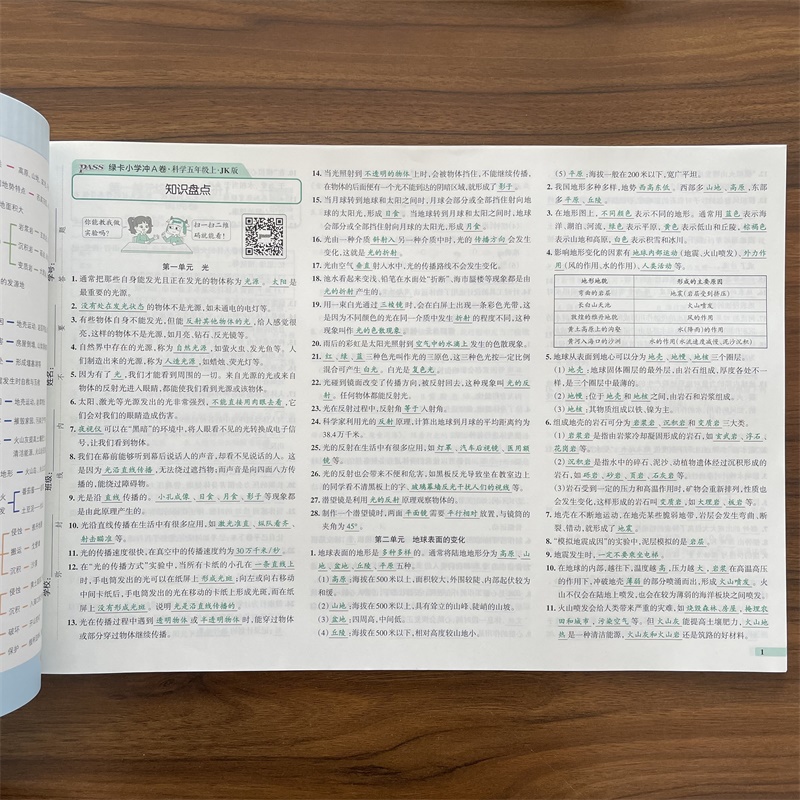 PASS 绿卡小学冲A卷·科学五年级上·JK版
知识盘点
你能教我做
实验吗?
扫一扫二维
码就能看!
第一单元 光
1. 通常把那些自身能发光且正在发光的物体称为光源。太阳是
最重要的光源。
2. 没有处在发光状态的物体不是光源,如未通电的电灯等。
3. 有些物体自身不能发光,但能反射其他物体的光,给人感觉很
亮,这样的物体不是光源,如月亮、钻石、反光镜等。
4. 自然界中存在的光源,称为自然光源,如萤火虫、发光鱼等。人
们制造出来的光源,称为人造光源,如蜡烛、荧光灯等。
5. 因为有了光,我们才能看到周围的一切。来自光源的光或来自
物体的反射光进入眼睛,都能使我们看到光源或该物体。
6. 太阳、激光等光源发出的光非常强烈,不能直接用肉眼去看,它
们会对我们的眼睛造成伤害。
7. 夜视仪可以在“黑暗”的环境中,将人眼看不见的光转换成电子信
号,让我们看到物体。
8. 我们在幕前能够听到幕后说话人的声音,却看不见说话的人。这
是因为光沿直线传播,无法绕过遮挡物;而声音是向四面八方传
播的,能绕过障碍物。
9. 光是沿直线传播的。小孔成像、日食、月食、影子等现象都
是由此原理产生的。
10. 光沿直线传播在生活中有很多应用,如激光准直、纵队看齐、
射击瞄准等。
11. 光的传播速度很快,在真空中的传播速度约为30万千米/秒。
12. 在“光的传播方式”实验中,当所有卡纸的小孔在一条直线上
时,手电筒发出的光可以在纸屏上形成光斑;向左或向右移动
中间卡纸后,手电筒发出的光在移动的卡纸上形成光斑,而在纸
屏上没有形成光斑。说明光是沿直线传播的。
13. 光在传播过程中遇到透明物体或半透明物体时,能穿过物体
或部分穿过物体继续传播。
14. 当光照射到不透明的物体上时,会被物体挡住,不能继续传播,
在物体的后面便有一个光不能到达的阴暗区域,就形成了影子。
15. 当月球转到地球和太阳之间时,月球会部分或全部挡住射向地
球的太阳光,形成日食。当地球转到月球和太阳之间时,地球
会部分或全部挡住射向月球的太阳光,形成月食。
16. 光由一种介质斜射入另一种介质中时,光的传播方向会发生
变化,这就是光的折射。
17. 光由空气垂直射入水中,光的传播路线不会发生变化。
18. 池水看起来变浅、铅笔在水面处“折断”、海市蜃楼等现象都是由
光的折射产生的。
19. 用一束白光通过三棱镜时,会在白屏上出现一条彩色光带,这
是因为不同颜色的光在同一介质中发生折射的程度不同,这种
现象叫作光的色散现象。
20. 雨后的彩虹是太阳光照射到空气中的水滴上发生的色散现象。
21. 红、绿、蓝三种色光叫作光的三原色,这三种色光按一定比例
混合可产生白光。白光是复色光。
22. 光碰到镜面改变了传播方向,被反射回去,这种现象叫光的反
射。任何物体都能反射光。
23. 光在反射过程中,反射角等于入射角。
24. 科学家利用光的反射原理,计算出地球到月球的平均距离约为
38.4万千米。
25. 光的反射在生活中有很多应用,如灯罩、汽车后视镜、医用额
镜等。
26. 光的反射也会带来不便和危害,如黑板反光导致坐在教室边上
的同学看不清黑板上的字、玻璃幕墙反光干扰人们的视线等。
27. 潜望镜是利用光的反射原理观察物体的。
28. 制作一个潜望镜时,两面平面镜需要平行相对放置,与镜筒的
夹角为45°。
第二单元 地球表面的变化
1. 地球表面的地形是多种多样的。通常将陆地地形分为高原、山
地、盆地、丘陵、平原五种。
(1)高原:海拔在500米以上,面积较大,外围较陡,内部起伏较为
和缓。
(2)山地:海拔在500米以上,具有耸立的山峰、陡峭的山坡。
(3)盆地:四周高,中间低。
(4)丘陵:海拔在500米以下,相对高度较山地小。
(5)平原:海拔一般在200米以下,宽广平坦。
2. 我国地形多种多样,地势西高东低。西部多山地、高原,东部
多平原、丘陵。
3. 在地形图上,不同颜色表示不同的地形。通常用蓝色表示海
洋、湖泊、河流,绿色表示平原,黄色表示低山和丘陵,棕褐色
表示山地和高原,白色表示积雪和冰川。
4. 影响地形变化的因素有地球内部运动(地震、火山喷发)、外力作
用(风的作用、水的作用)、人类活动等。
地形地貌 形成的主要原因
弯曲的岩层 地震(岩层受到挤压)
长白山天池 火山喷发
敦煌的雅丹地貌 风的作用
黄土高原上的沟壑 水(降雨)的作用
黄河入海口的沙洲 水的作用(水流速度减慢、泥沙沉积)
5. 地球从表面到地心可以分为地壳、地幔、地核三个圈层。
(1)地壳:地球固体圈层的最外层,由岩石组成,厚度各处不一
样,是三个圈层中最薄的。
(2)地幔:位于地壳和地核之间,由岩石和岩浆组成。
(3)地核:其物质组成以铁、镍为主。
6. 组成地壳的岩石可分为岩浆岩、沉积岩和变质岩三大类。
(1)岩浆岩是指由岩浆冷却凝固形成的岩石,如玄武岩、浮石、
花岗岩等。
(2)沉积岩是指水中的碎石、泥沙、动植物遗体经过沉积形成的
岩石,如砾岩、砂岩、页岩、石灰岩等。
(3)岩石受到一定的压力和高温作用时,矿物会重新排列,性质也
会发生变化,这样形成的岩石叫变质岩,如大理岩、板岩等。
7. 地壳在不断地运动,在地壳某些脆弱地带,岩层会发生弯曲、断
裂、错动,就形成了地震。
8. “模拟地震成因”的实验中,泥层模拟的是岩层。
9. 地震发生时,一定不要乘坐电梯。
10. 在地球的内部,越往下,温度越高,压力越大,岩浆在高温高压
的作用下,冲破地壳薄弱的部分喷涌而出,形成火山喷发。火
山不仅会在陆地上喷发,也会在较为薄弱的海洋板块之间喷发。
11. 火山喷发会给人类带来严重的灾难,如烧毁森林、房屋,掩埋农
田和城市,污染空气等。但火山灰能提高土壤肥力,火山地
热是一种清洁能源,火山灰和火山岩还是筑路的好材料。
1
学号:
姓名:
班级:
学校: